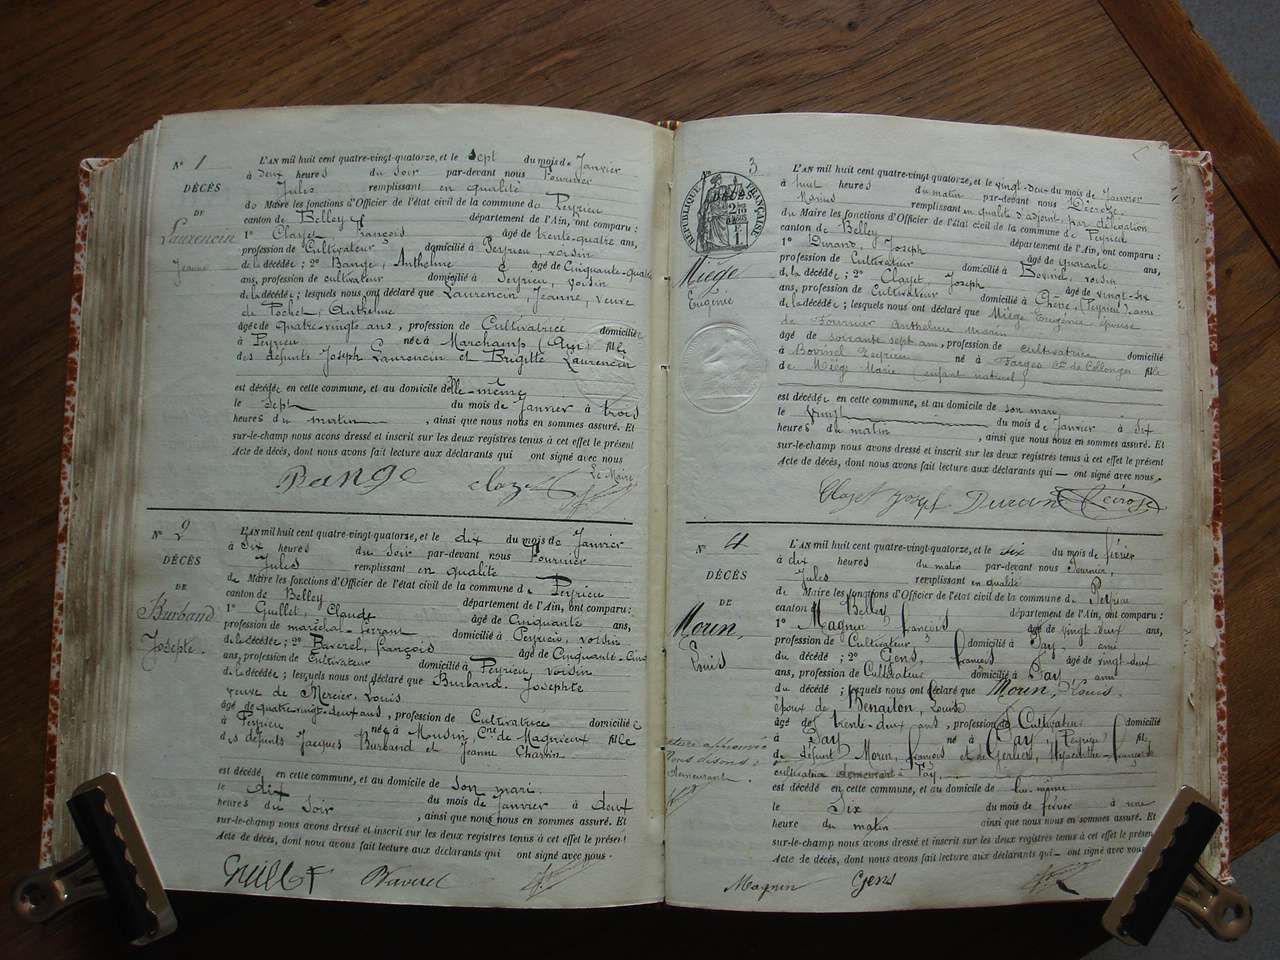 N° 1
DÉCÈS
DE
Laurencin
Jeanne
L'AN mil huit cent quatre-vingt-quatorze, et le sept du mois de Janvier
à deux heures du soir par-devant nous Fournier
Jules remplissant en qualité
de Maire les fonctions d'Officier de l'état civil de la commune de Peyrieu
canton de Belley département de l'Ain, ont comparu :
1° Clayet François âgé de trente-quatre ans,
profession de Cultivateur domicilié à Peyrieu, voisin
de la décédée ; 2° Bange, Anthelme âgé de Cinquante-quatre
ans, profession de cultivateur domicilié à Peyrieu, voisin
de la décédée ; lesquels nous ont déclaré que Laurencin, Jeanne, veuve
de Pochet, Anthelme
âgée de quatre-vingts ans, profession de Cultivatrice domiciliée
à Peyrieu née à Marchamp (Ain) fille
des défunts Joseph Laurencin et Brigitte Laurencin
est décédée en cette commune, et au domicile d'elle-même
le sept du mois de Janvier à trois
heures du matin, ainsi que nous nous en sommes assuré. Et
sur-le-champ nous avons dressé et inscrit sur les deux registres tenus à cet effet le présent
Acte de décès, dont nous avons fait lecture aux déclarants qui ont signé avec nous
Le Maire
Bange Clayet
N° 2
DÉCÈS
DE
Burband
Josephte.
L'AN mil huit cent quatre-vingt-quatorze, et le dix du mois de Janvier
à six heures du soir par-devant nous Fournier
Jules remplissant en qualité
de Maire les fonctions d'Officier de l'état civil de la commune de Peyrieu
canton de Belley département de l'Ain, ont comparu :
1° Guillet, Claude âgé de Cinquante ans,
profession de maréchal-ferrant domicilié à Peyrieu, voisin
de la décédée ; 2° Baverel, françois âgé de Cinquante-Cinq
ans, profession de Cultivateur domicilié à Peyrieu, voisin
de la décédée ; lesquels nous ont déclaré que Burband, Josephte
veuve de Mercier, Louis
âgé de quatre-vingt-deux ans, profession de Cultivatrice domiciliée
à Peyrieu née à Mousin, Cne de Magnieux fille
des défunts Jacques Burband et Jeanne Charvin
est décédée en cette commune, et au domicile de son mari
le dix du mois de Janvier à douze
heures du soir, ainsi que nous nous en sommes assuré. Et
sur-le-champ nous avons dressé et inscrit sur les deux registres tenus à cet effet le présent
Acte de décès, dont nous avons fait lecture aux déclarants qui ont signé avec nous.
Guillet Baverel
N° 3
RÉPUBLIQUE FRANÇAISE
DÉCÈS
Miège
Eugénie
L'AN mil huit cent quatre-vingt-quatorze, et le vingt-deux du mois de Janvier
à huit heures du matin par-devant nous Décroze
Marius remplissant en qualité d'adjoint par délégation
du Maire les fonctions d'Officier de l'état civil de la commune de Peyrieu
canton de Belley département de l'Ain, ont comparu :
1° Durand, Joseph âgé de quarante ans,
profession de Cultivateur domicilié à Bovinel voisin
de la décédée ; 2° Clayet, Joseph âgé de vingt-six
ans, profession de Cultivateur domicilié à Chêne, (Peyrieu), ami
de la décédée ; lesquels nous ont déclaré que Miège Eugénie épouse
de Fournier Anthelme Marin
âgé de soixante sept ans, profession de cultivatrice domicilié
à Bovinel Peyrieu né à Farges Con de Collonges fille
de Miége Marie (enfant naturel)
est décédée en cette commune, et au domicile de son mari
le vingt du mois de Janvier à six
heures du matin, ainsi que nous nous en sommes assuré. Et
sur-le-champ nous avons dressé et inscrit sur les deux registres tenus à cet effet le présent
Acte de décès, dont nous avons fait lecture aux déclarants qui — ont signé avec nous.
Clayet Joseph Durand Décroze
N° 4
DÉCÈS
DE
Morin,
Louis
L'AN mil huit cent quatre-vingt-quatorze, et le six du mois de février
à dix heures du matin par-devant nous Fournier,
Jules remplissant en qualité
de Maire les fonctions d'Officier de l'état civil de la commune de Peyrieu
canton de Belley département de l'Ain, ont comparu :
1° Magnin françois âgé de vingt-deux ans,
profession de Cultivateur domicilié à Fay, ami
du décédé ; 2° Gens, francois âgé de vingt-deux
ans, profession de Cultivateur domicilié à Fay ami
du décédé ; lesquels nous ont déclaré que Morin, Louis.
époux de Benaiton, Louise
âgé de trente-deux ans, profession de Cultivateur domicilié
à Fay né à Fay (Peyrieu) fils
de défunt Morin, françois et de Hyacinthe-françoise
cultivatrice demeurant à Fay.
est décédé en cette commune, et au domicile de lui-même
le Six du mois de février à une
heure du matin ainsi que nous nous en sommes assuré. Et
sur-le-champ nous avons dressé et inscrit sur les deux registres tenus à cet effet le présent
Acte de décès, dont nous avons fait lecture aux déclarants qui — ont signé avec nous
Magnin Gens
Nous disons :
demeurant.